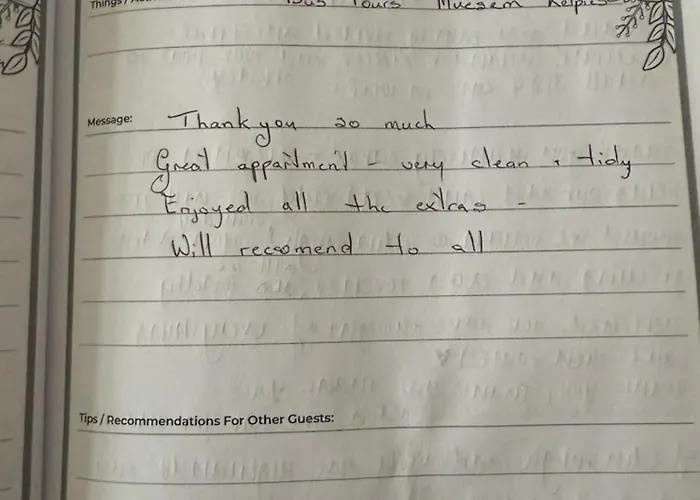 Things /
Bus Tours Muesem Kelpies
Message: Thank you so much
Great appartment - very clean + tidy
Enjoyed all the extras -
Will reccomend to all
Tips / Recommendations For Other Guests: